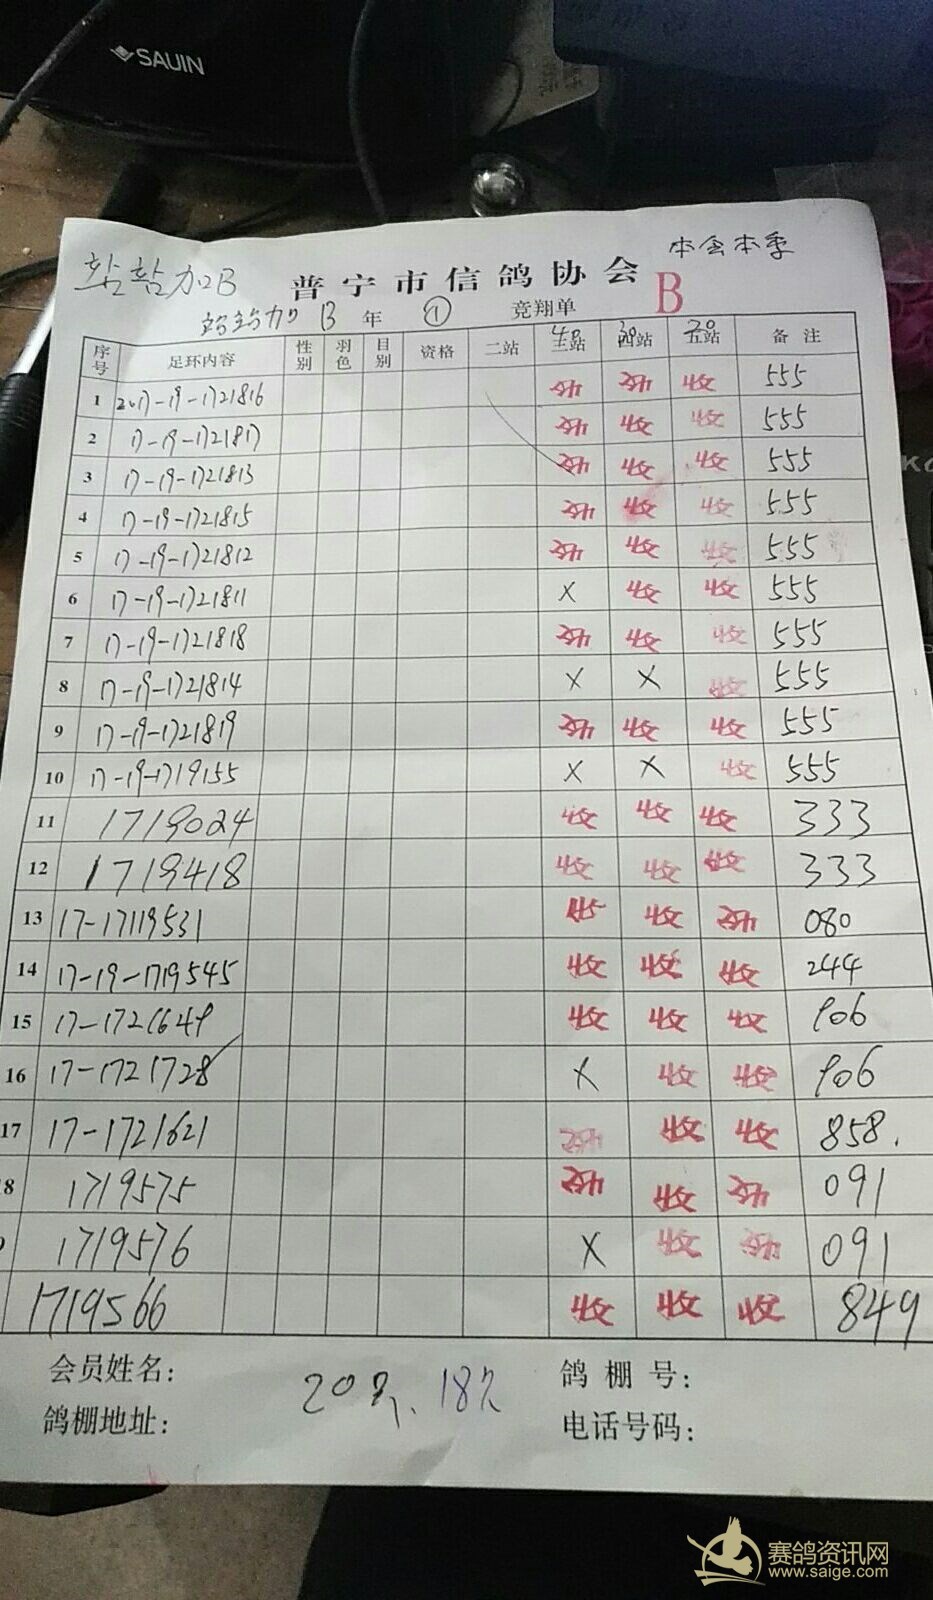 SAUIN
站站加B 普宁市信鸽协会 本会本季
站站加 B 年 ① 竞翔单 B
序号 足环内容 性别 羽色 目别 资格 二站 40三站 30四站 20五站 备注
1 2017-19-1721816 收 收 收 555
2 17-19-1721817 收 收 收 555
3 17-19-1721813 收 收 收 555
4 17-19-1721815 收 收 收 555
5 17-19-1721812 收 收 收 555
6 17-19-1721811 X 收 收 555
7 17-19-1721818 收 收 收 555
8 17-19-1721814 X X 收 555
9 17-19-1721819 收 收 收 555
10 17-19-1719155 X X 收 555
11 1719024 收 收 收 333
12 1719418 收 收 收 333
13 17-17119531 收 收 收 080
14 17-19-1719545 收 收 收 244
15 17-1721649 收 收 收 906
16 17-1721728 X 收 收 906
17 17-1721621 收 收 收 858.
8 1719575 收 收 收 091
1719576 X 收 收 091
1719566 收 收 收 849
会员姓名： 鸽棚号：
鸽棚地址： 电话号码：
赛鸽资讯网
www.saige.com